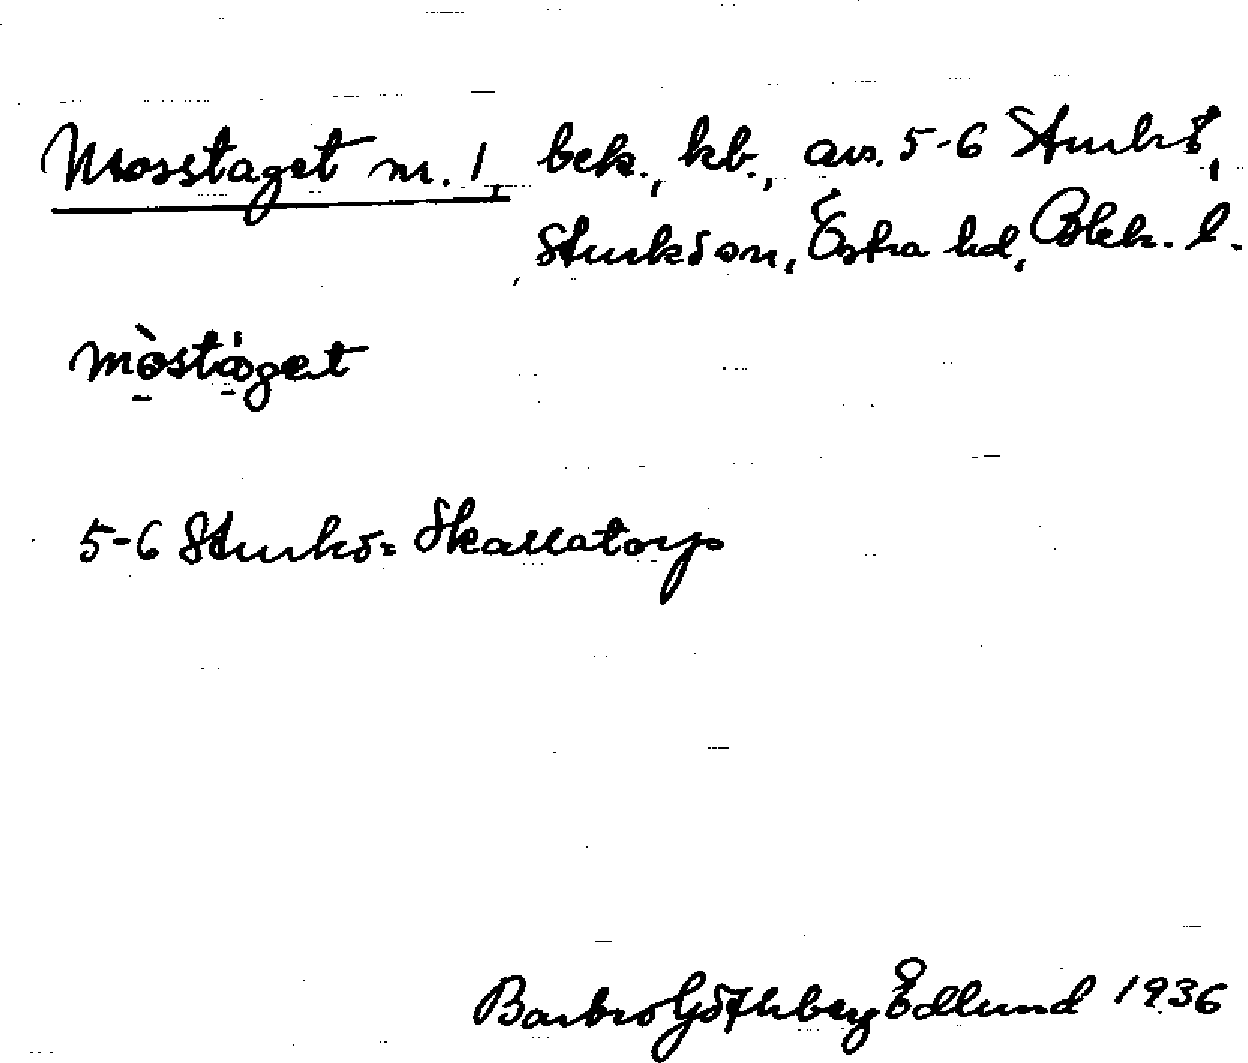 Mosstaget nr. 1, bek., kb., avs. 5-6 Sturkö,
Sturköon, Östra hd, Blek. l.
mòstáget
5-6 Sturkö = Skallatorp
Barbro Göthberg Edlund 1936